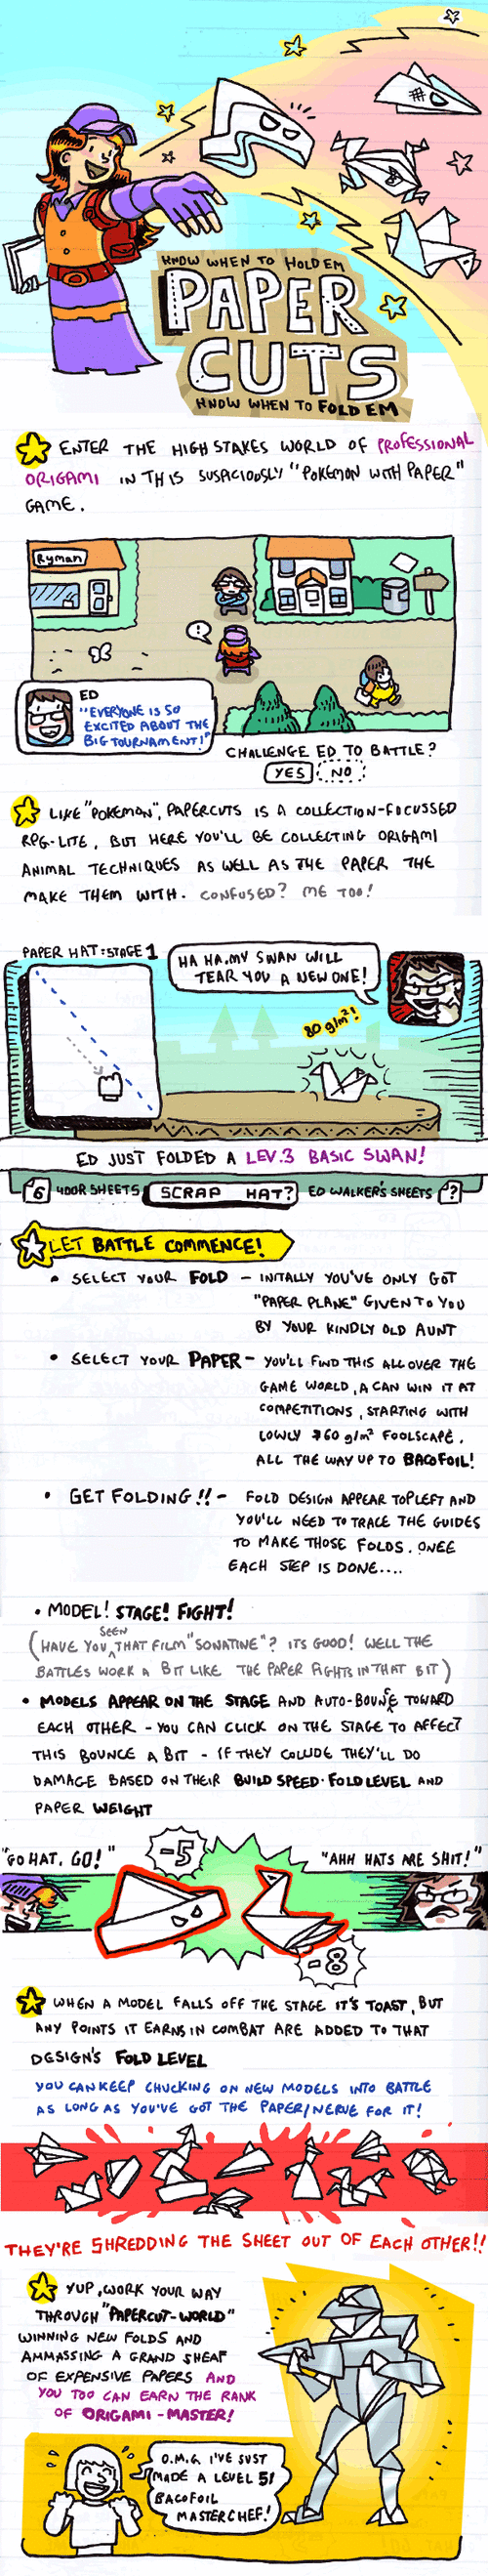 KNOW WHEN TO HOLD EM
PAPER
CUTS
KNOW WHEN TO FOLD EM
ENTER THE HIGH STAKES WORLD OF PROFESSIONAL
ORIGAMI IN THIS SUSPICIOUSLY "POKEMON WITH PAPER"
GAME.
Ryman
!
ED
"EVERYONE IS SO
EXCITED ABOUT THE
BIG TOURNAMENT!"
CHALLENGE ED TO BATTLE?
YES NO
LIKE "POKEMON", PAPERCUTS IS A COLLECTION-FOCUSSED
RPG-LITE, BUT HERE YOU'LL BE COLLECTING ORIGAMI
ANIMAL TECHNIQUES AS WELL AS THE PAPER THE
MAKE THEM WITH. CONFUSED? ME TOO!
PAPER HAT: STAGE 1
HA HA. MY SWAN WILL
TEAR YOU A NEW ONE!
80 g/m²!
ED JUST FOLDED A LEV.3 BASIC SWAN!
6 YOOR SHEETS SCRAP HAT? ED WALKER'S SHEETS ?
LET BATTLE COMMENCE!
• SELECT YOUR FOLD - INITALLY YOU'VE ONLY GOT
"PAPER PLANE" GIVEN TO YOU
BY YOUR KINDLY OLD AUNT
• SELECT YOUR PAPER - YOU'LL FIND THIS ALL OVER THE
GAME WORLD, A CAN WIN IT AT
COMPETITIONS, STARTING WITH
LOWLY 60 g/m² FOOLSCAPE,
ALL THE WAY UP TO BACOFOIL!
• GET FOLDING!! - FOLD DESIGN APPEAR TOP LEFT AND
YOU'LL NEED TO TRACE THE GUIDES
TO MAKE THOSE FOLDS. ONEE
EACH STEP IS DONE....
• MODEL! STAGE! FIGHT!
(HAVE YOU SEEN THAT FILM "SONATINE"? ITS GOOD! WELL THE
BATTLES WORK A BIT LIKE THE PAPER FIGHTS IN THAT BIT)
• MODELS APPEAR ON THE STAGE AND AUTO-BOUNCE TOWARD
EACH OTHER - YOU CAN CLICK ON THE STAGE TO AFFECT
THIS BOUNCE A BIT - IF THEY COLLIDE THEY'LL DO
DAMAGE BASED ON THEIR BUILD SPEED. FOLD LEVEL AND
PAPER WEIGHT
"GO HAT, GO!"
-5
"AHH HATS ARE SHIT!"
-8
WHEN A MODEL FALLS OFF THE STAGE IT'S TOAST, BUT
ANY POINTS IT EARNS IN COMBAT ARE ADDED TO THAT
DESIGN'S FOLD LEVEL
YOU CAN KEEP CHUCKING ON NEW MODELS INTO BATTLE
AS LONG AS YOU'VE GOT THE PAPER/NERVE FOR IT!
THEY'RE SHREDDING THE SHEET OUT OF EACH OTHER!!
YUP, WORK YOUR WAY
THROUGH "PAPERCUT-WORLD"
WINNING NEW FOLDS AND
AMMASSING A GRAND SHEAF
OF EXPENSIVE PAPERS AND
YOU TOO CAN EARN THE RANK
OF ORIGAMI-MASTER!
O.M.G. I'VE JUST
MADE A LEVEL 51
BACOFOIL
MASTERCHEF!